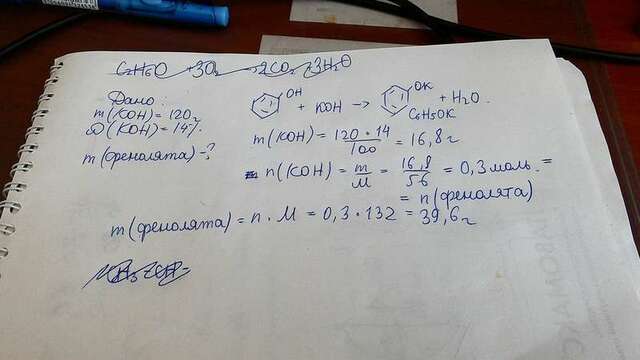 C₂H₆O + 3O₂ → 2CO₂ + 3H₂O
Дано:
m(KOH) = 120г
ω(KOH) = 14%.
m(фенолята) - ?
OH + KOH → OK + H₂O.
C₆H₅OK
m(KOH) = 120 · 14 / 100 = 16,8г
n(KOH) = m / M = 16,8 / 56 = 0,3 моль. =
= n(фенолята)
m(фенолята) = n · M = 0,3 · 132 = 39,6г